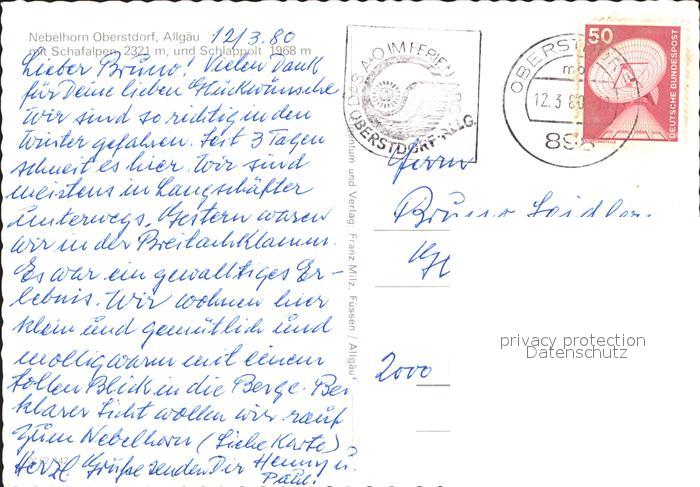 Nebelhorn Oberstdorf, Allgäu
mit Schafalpen 2321 m, und Schlappolt 1968 m
12/3.80
Lieber Bruno! Vielen Dank
für Deine lieben Glückwünsche
Wir sind so richtig in den
Winter gefahren. Seit 3 Tagen
schneit es hier. Wir sind
meistens in Langschäfter
unterwegs. Gestern waren
wir in der Breitachklamm.
Es war ein gewaltiges Er-
lebnis. Wir wohnen hier
klein und gemütlich und
mollig warm mit einem
tollen Blick in die Berge. Bei
klarer Sicht wollen wir rauf
zum Nebelhorn (Siehe Karte)
Herzl. Grüße senden Dir Henny u.
Paul.
DAS A+O IM FERIEN
OBERSTDORF/ALLG.
OBERST
12.3.80
898
50
DEUTSCHE BUNDESPOST
und Verlag: Franz Milz, Füssen / Allgäu
Herrn
Bruno
2000
privacy protection
Datenschutz